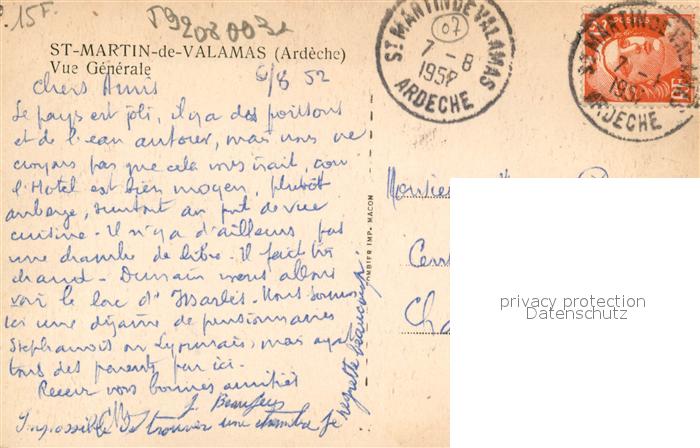 15F
T9208003a
ST-MARTIN-de-VALAMAS (Ardèche)
Vue Générale
6/8 52
Chers Amis
Le pays est joli, il y a des poissons
et de l'eau autour, mais nous ne
croyons pas que cela vous irait, car
l'Hotel est bien moyen, plutôt
auberge, surtout au pt de vue
cuisine. Il n'y a d'ailleurs pas
une chambre de libre. Il fait très
chaud. Demain nous allons
voir le lac d'Issarlès. Nous sommes
ici une dizaine de pensionnaires
Stephanois ou Lyonnais, mais
tous des parents par ici.
Recevez vos bonnes amitiés
Impossible de trouver une chambre je
regrette beaucoup!
COMBIER IMP. MACON
ST MARTIN DE VALAMAS
07
7-8
1952
ARDECHE
POSTES
ST MARTIN DE VALAMAS
1952
ARDECHE
Monsieur
Cen
Cha
privacy protection
Datenschutz